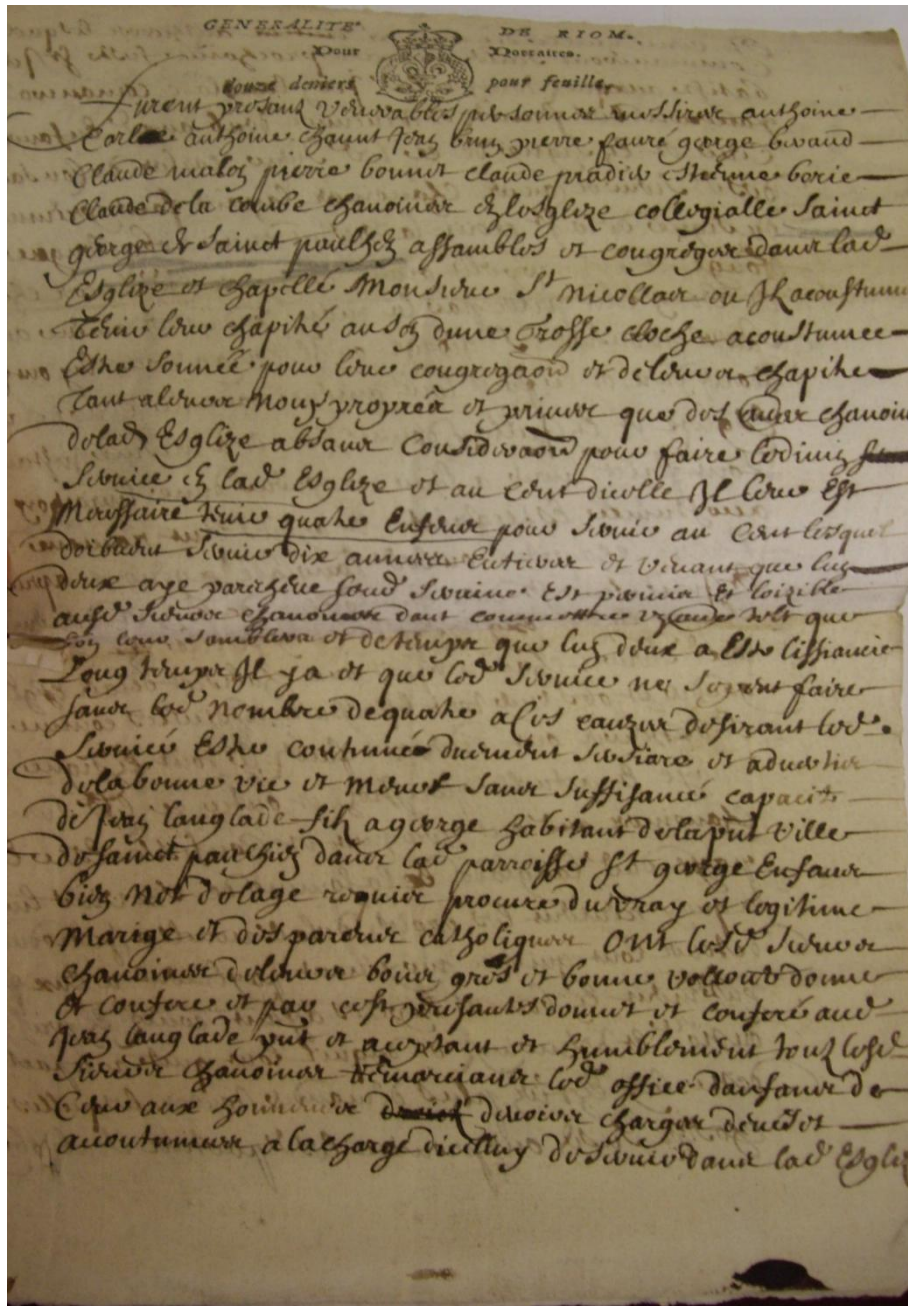 GENERALITE DE RIOM.
Pour Nottaires.
douze deniers pour feuille.
Furent presant venerables personnes messires anthoine
anthoine chaunt Jean brun pierre fauré george
Claude pierre bonnet claude pradie estienne borie
Claude dela combe chanoines en lesglize collegialle Sainct
george de Sainct paulhen assambles et congreges dans lad
Esglize et chapelle Monsieur St nicollas ou Jl acoustume
Tenir leur chapitre au son dune Grosse cloche acoustumee
Estre sonnée pour leur congregaon et de leur chapitre
Tant aleurs noms propres et prives que des autres chanoin
delad Esglize absans Considerant pour faire ledivin
Service en lad Esglize et au cœur dicelle Jl leur est
Necessaire tenir quatre Enfans pour servir au Cœur lesquel
doibvent servir dix annees Entieres et venant que lun
deux aye parachevé sond service Est permis Et loizible
ausd sieurs chanoines dont commettre ung autre tel que
bon leur semblera et de temps que lun deux a Este
Long temps Jl ya et que led service ne se peut faire
sans led nombre de quatre a Ces cauzes desirant led
Service Estre continué duement et
dela bonne vie et meurs sans suffisance capacite
de Jean langlade filz a george habitant dela pnt ville
de sainct paulhien dans lad parroisse St george Enfans
bien Net de lage requier procure du vray et legitime
Marige et des parens catholiques ONt lesd sieurs
chanoines de leurs bons gres et bonne vollonte donne
Et confere et par cest presantes donnet et conferé aud
Jean langlade pnt et aceptant et humblement tous lesd
sieurs chanoines Remarcians led office danfans de
Cœur aux honneurs devoirs charges deues et
acoutumees a la charge dicelluy de servir dans lad Esglize